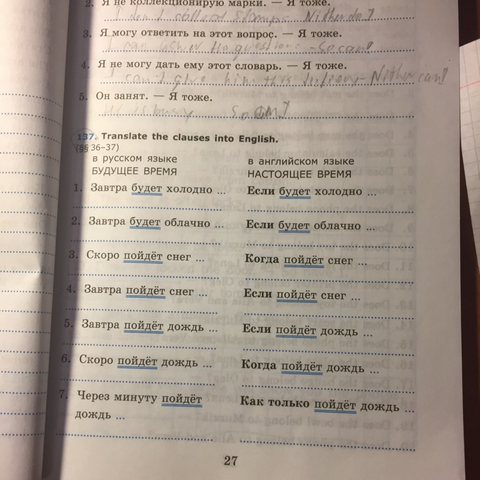 2. Я не коллекционирую марки. — Я тоже.
I don't collect stamps.
3. Я могу ответить на этот вопрос. — Я тоже.
I can
4. Я не могу дать ему этот словарь. — Я тоже.
I can't give him this
5. Он занят. — Я тоже.
137. Translate the clauses into English.
(§§ 36–37)
в русском языке в английском языке
БУДУЩЕЕ ВРЕМЯ НАСТОЯЩЕЕ ВРЕМЯ
1. Завтра будет холодно ... Если будет холодно ...
2. Завтра будет облачно ... Если будет облачно ...
3. Скоро пойдёт снег ... Когда пойдёт снег ...
4. Завтра пойдёт снег ... Если пойдёт снег ...
5. Завтра пойдёт дождь ... Если пойдёт дождь ...
6. Скоро пойдёт дождь ... Когда пойдёт дождь ...
7. Через минуту пойдёт Как только пойдёт дождь ...
дождь ...
27